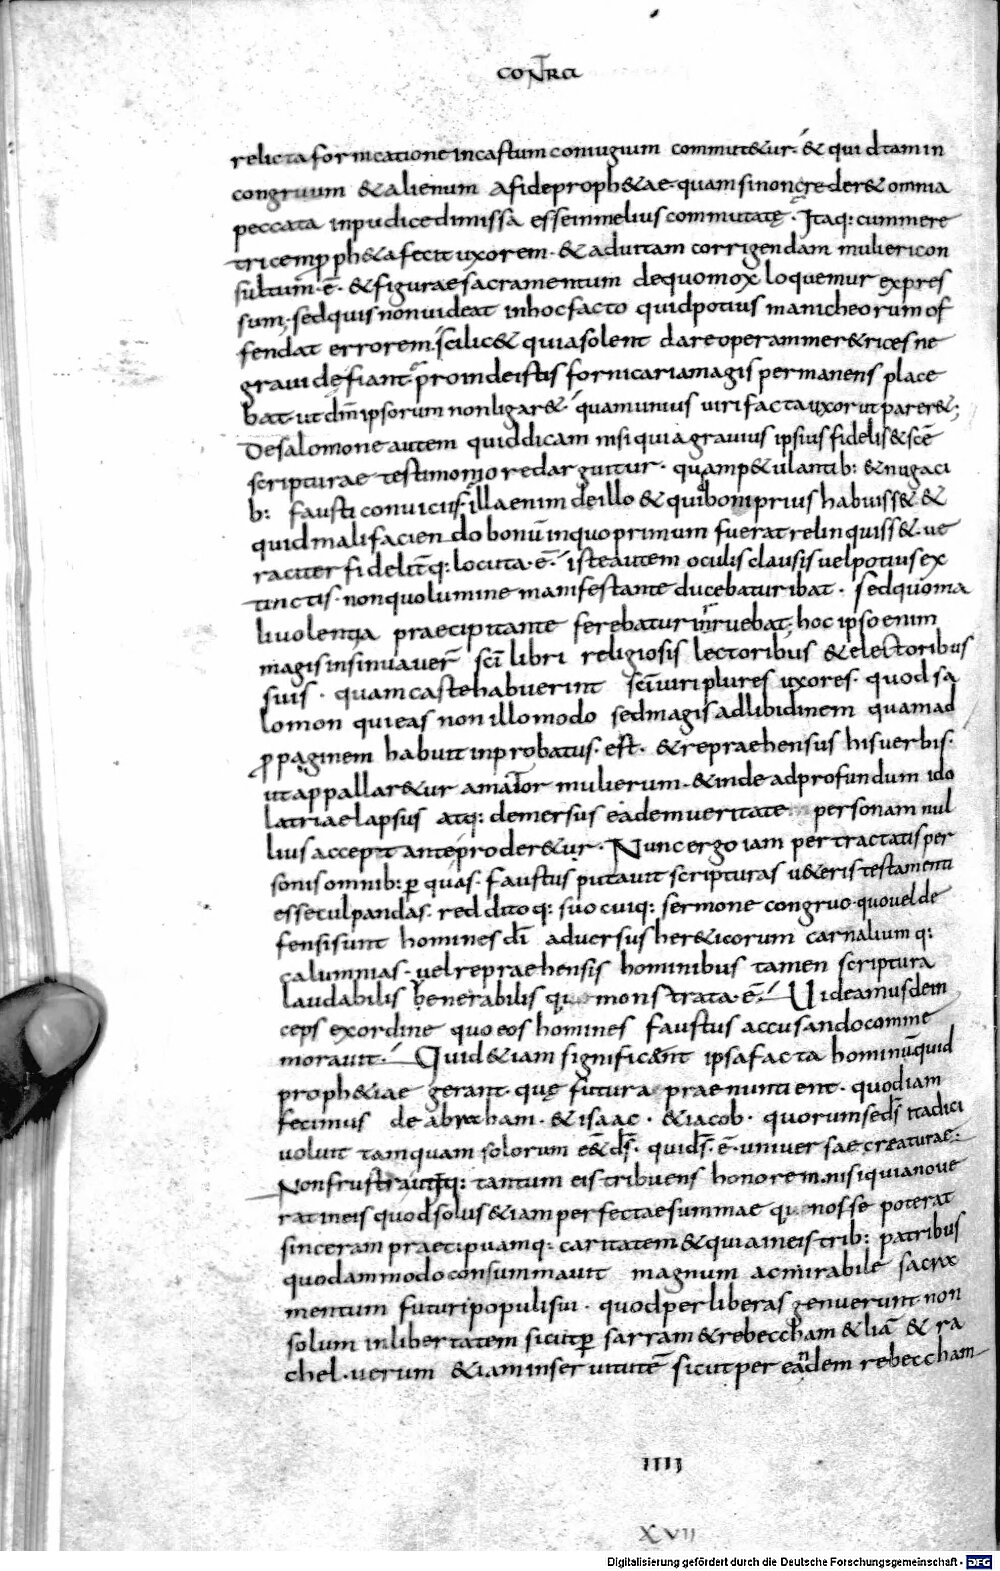 CONTRA
relicta fornicatione in castum coniugium commut&ur· & quid tam in
congruum & alienum a fide proph&ae· quam si non creder& omnia
peccata inpudice dimissa esse in melius commutatę· Itaq: cum mere
tricem pph&a fecit uxorem· & ad uitam corrigendam mulieri con
sultum· ē· & figurae sacramentum de quo mox loquemur expres
sum· sed quis non uideat in hoc facto quid potius manicheorum of
fendat errorem· scilic& quia solent dare operam mer&rices ne
grauidę fiant· proinde istis fornicaria magis permanens place
bat· ut dm̄ ipsorum non ligar&· quam unius uiri facta uxor ut parer&;
De salomone autem quid dicam nisi quia grauius ipsius fidelis & scē
scripturae testimonio redarguitur· quam p&ulantib: & nugaci
b: fausti conuiciis· illa enim de illo & quid boni prius habuiss& &
quid mali faciendo bonū in quo primum fuerat relinquiss&· ue
raciter fidelit̄q: locuta· ē· iste autem oculis clausis uel potius ex
tinctis· non quo lumine manifestante ducebatur ibat· sed quo ma
liuolentia praecipitante ferebatur inruebat· hoc ipso enim
magis insinuauer̄ scī libri religiosis lectoribus & electoribus
suis· quam caste habuerint scī uiri plures uxores· quod sa
lomon qui eas non illo modo sed magis ad libidinem quam ad
ppaginem habuit inprobatus· est· & repraehensus his uerbis·
ut appallar&ur amator mulierum· & inde ad profundum ido
latriae lapsus atq: demersus eadem ueritate personam nul
lius accepit ante proder&ur· Nunc ergo iam pertractatis per
sonis omnib: p quas· faustus putauit scripturas u&eris testamenti
esse culpandas· redditoq: suo cuiq: sermone congruo· quo uel de
fensi sunt homines dī aduersus her&icorum carnaliumq:
calumnias· uel repraehensis hominibus tamen scriptura
laudabilis uenerabilisq: monstrata· ē· Uideamus dein
ceps ex ordine quo eos homines faustus accusando comme
morauit· Quid &iam significent ipsa facta hominū quid
proph&iae gerant· quę futura praenuntient· quod iam
fecimus de abraham· & isaac· & iacob· quorum se ds̄ ita dici
uoluit tamquam solorum e& ds̄· qui ds̄· ē· uniuersae creaturae:
Non frustra utiq: tantum eis tribuens honorem· nisi quia noue
rat in eis quod solus &iam perfectae summae qu nosse poterat
sinceram praecipuamq: caritatem & quia in eis trib: patribus
quodammodo consummauit magnum ac mirabile sacra
mentum futuri populi sui· quod per liberas genuerunt· non
solum in libertatem sicut p sarram & rebeccham & liā & ra
chel· uerum &iam in seruitutē sicut per eandem rebeccham
IIII
XVII
Digitalisierung gefördert durch die Deutsche Forschungsgemeinschaft - DFG